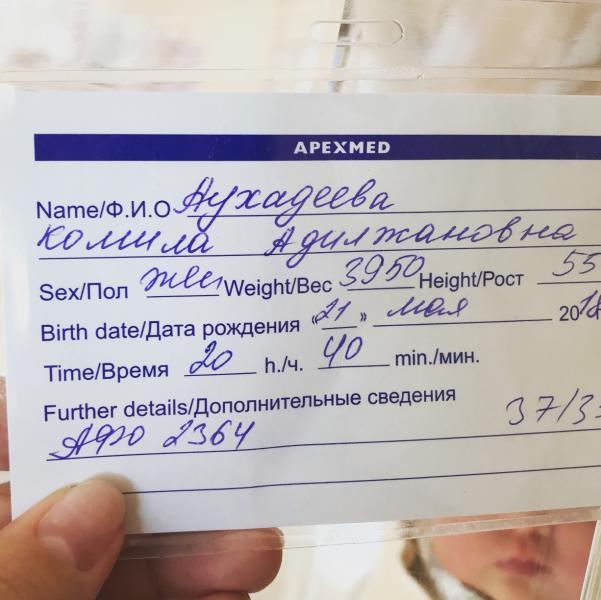 APEXMED
Name/Ф.И.О Аухадеева
Комила Адилжановна
Sex/Пол жен Weight/Вес 3950 Height/Рост 55
Birth date/Дата рождения «21» мая 2018
Time/Время 20 h./ч. 40 min./мин.
Further details/Дополнительные сведения
37/3
АФО 2364